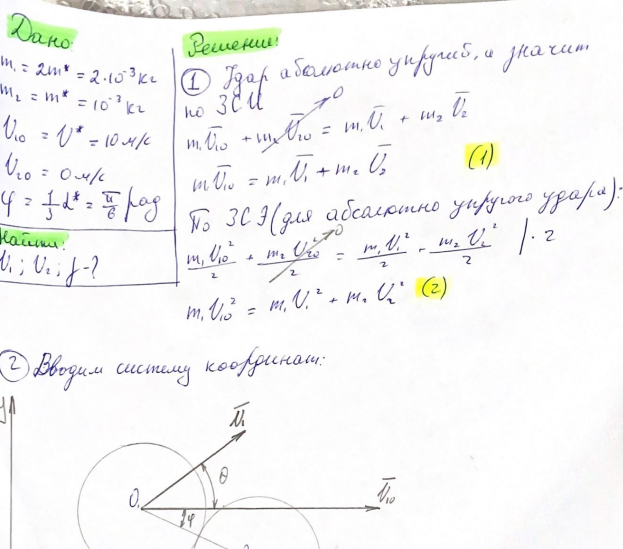 Дано:
m₁ = 2m* = 2·10⁻³ кг
m₂ = m* = 10⁻³ кг
V₁₀ = V* = 10 м/с
V₂₀ = 0 м/с
φ = 1/3 α* = π/6 рад
Найти:
V₁; V₂; f-?
Решение:
1 Удар абсолютно упругий, а значит
по ЗСИ
m₁V̅₁₀ + m₂V̅₂₀ = m₁V̅₁ + m₂V̅₂
0
mV̅₁₀ = m₁V̅₁ + m₂V̅₂ (1)
По ЗСЭ (для абсолютно упругого удара):
m₁V₁₀²/2 + m₂V₂₀²/2 = m₁V₁²/2 - m₂V₂²/2 |·2
0
m₁V₁₀² = m₁V₁² + m₂V₂² (2)
2 Вводим систему координат:
y
V̅₁
θ
O₁
V̅₁₀
φ